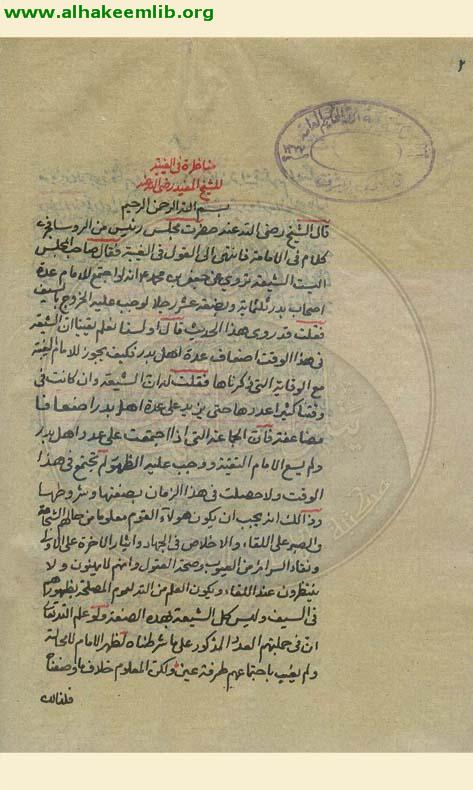 www.alhakeemlib.org
٢
مناظرة في الغيبة
للشيخ المفيد رضي الله عنه
بسم الله الرحمن الرحيم
قال الشيخ رضي الله عنه حضرت مجلس رئيس من الروساء فجرى
كلام في الامامة فانتهى الى القول في الغيبة فقال صاحب المجلس
الست الشيعة تروي عن جعفر بن محمد ع انه لو اجتمع للامام عدة
اصحاب بدر ثلثماية وبضعة عشر رجلا لوجب عليه الخروج بالسيف
فقلت قد روي هذا الحديث قال اولسنا نعلم يقينا ان الشيعة
في هذا الوقت اضعاف عدة اهل بدر فكيف يجوز للامام الغيبة
مع الرواية التي ذكرناها فقلت له ان الشيعة وان كانت في
وقتنا كثيرا عددها حتى يزيد على عدة اهل بدر اضعافا
مضاعفة فان الجماعة التي اذا اجتمعت على عدد اهل بدر
ولم يسع الامام التقية ووجب عليه الظهور لم تجتمع في هذا
الوقت ولا حصلت في هذا الزمان بصفتها وشروطها
وذالك انه يجب ان يكون هولاء القوم معلوما من حالهم الشجاعة
والصبر على اللقاء والاخلاص في الجهاد وايثار الاخرة على الاولى
ونقاء السراير من العيوب وصحة العقول وانهم لا يهنون ولا
ينتظرون عند اللقاء ويكون العلم من الله لعموم المصلحة بظهورهم
في السيف وليس كل الشيعة بهذه الصفة ولو علم الله تعالى
ان في جملتهم العدد المذكور على ما شرطناه لظهر الامام لا محالة
ولم يغب باجتماعهم طرفة عين ولكن المعلوم خلاف ما وصفناه
فلذالك